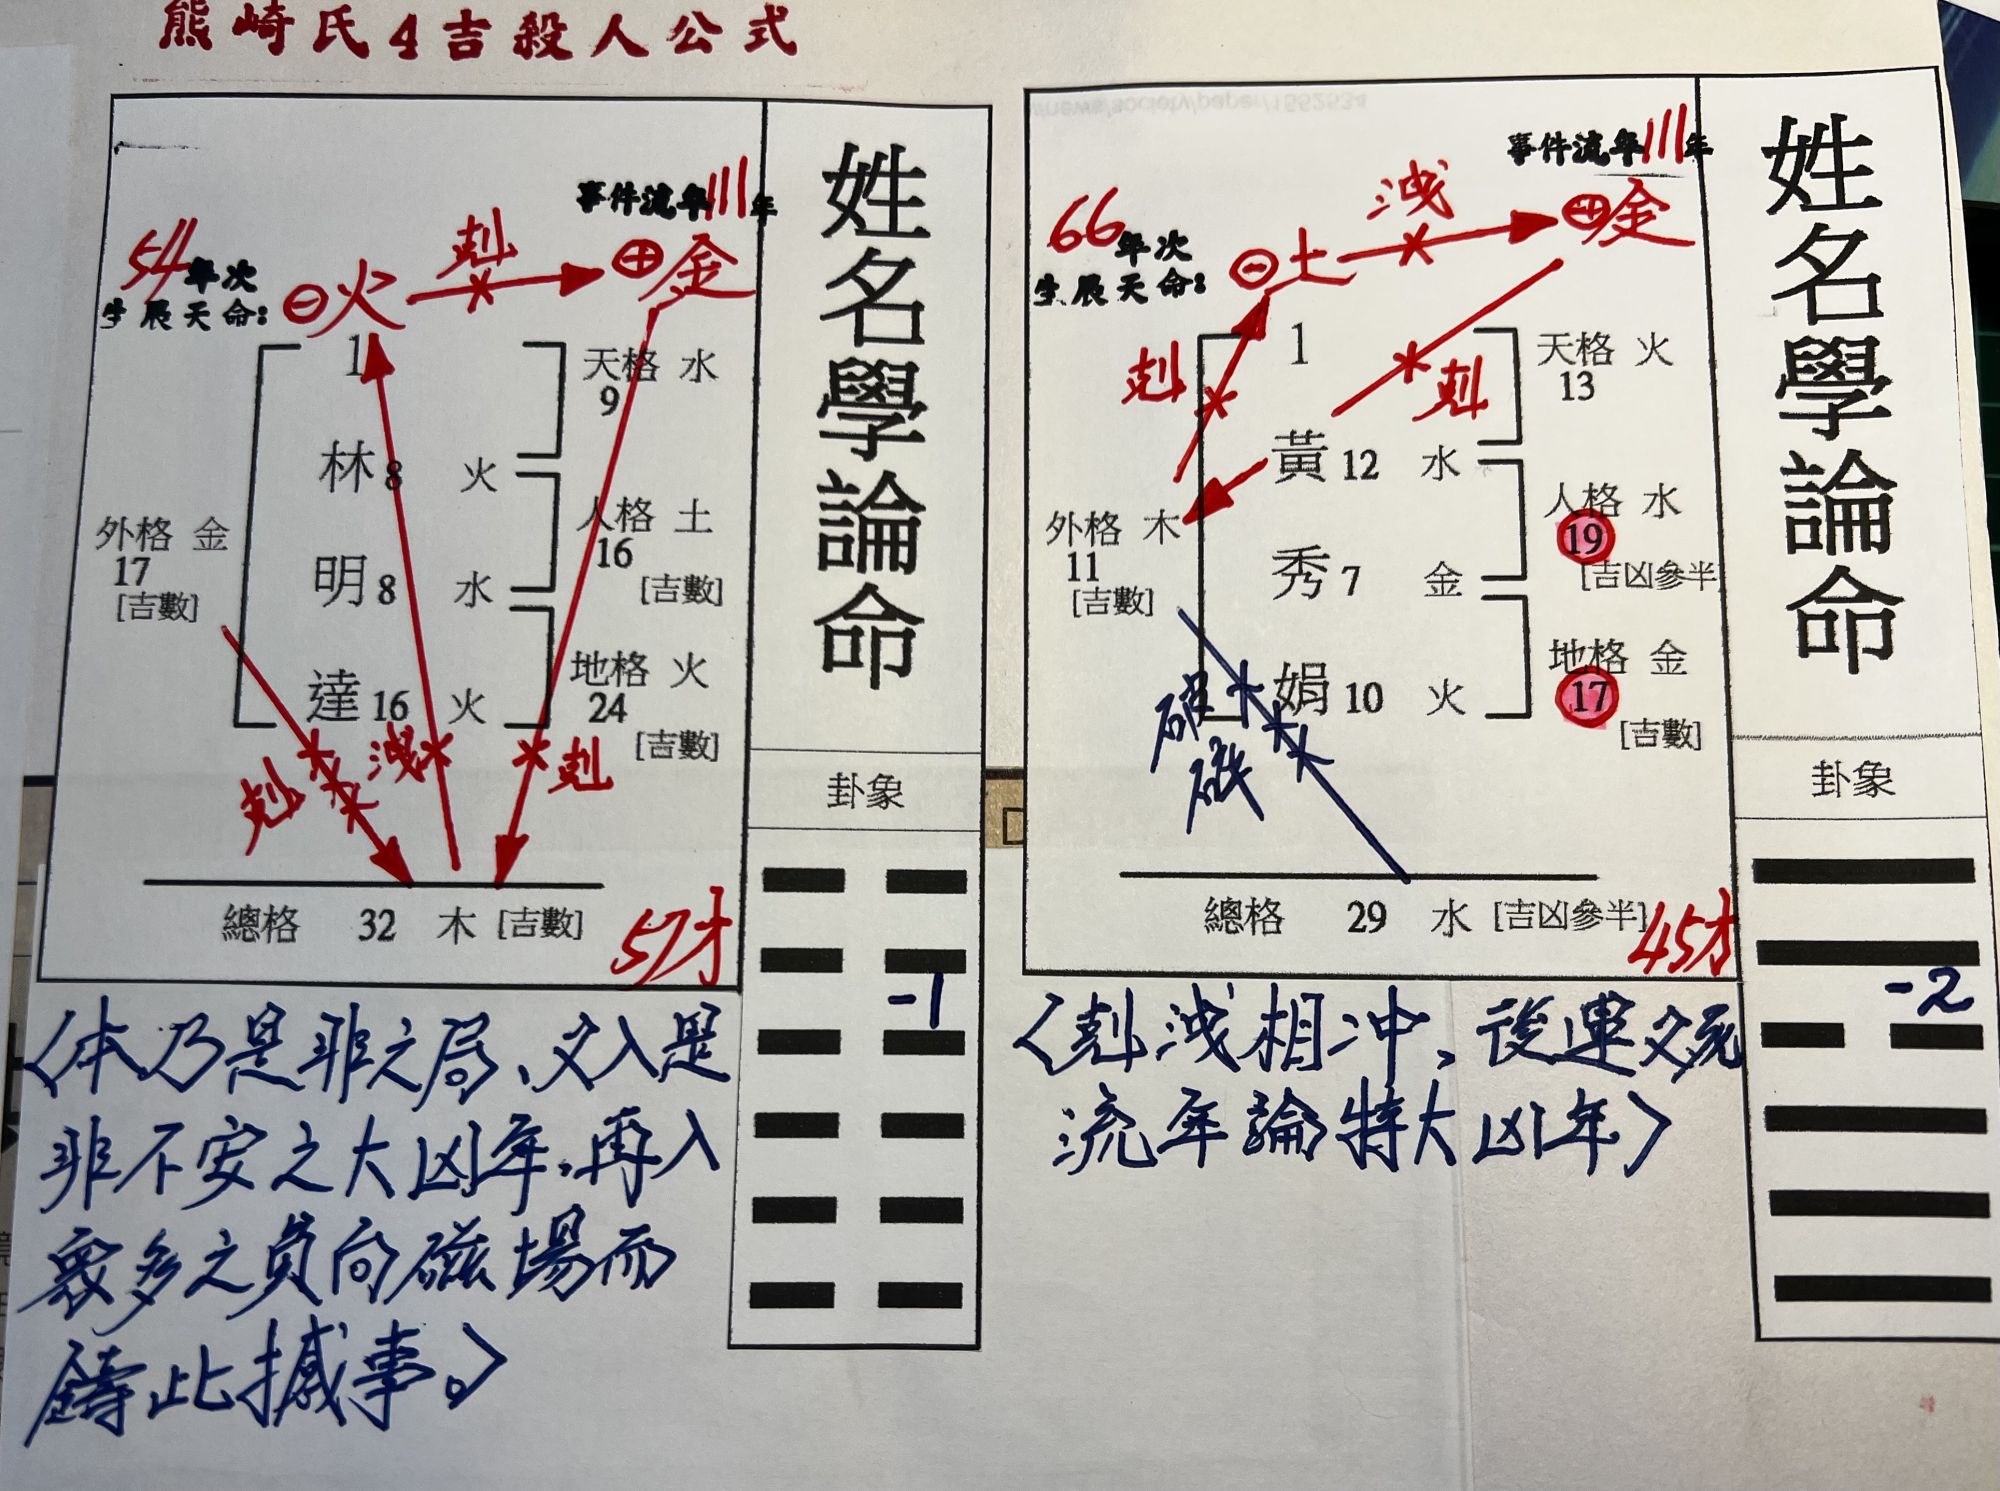 熊崎氏4吉殺人公式
姓名學論命
事件流年111年
54年次
生辰天命:
⊖火
剋
⊕金
1
天格 水
9
林 8 火
外格 金
17
[吉數]
人格 土
16
[吉數]
明 8 水
地格 火
24
[吉數]
達 16 火
剋
洩
剋
總格 32 木 [吉數]
57才
卦象
-1
〈本乃是非之局、又入是
非不安之大凶年,再入
眾多之負向磁場而
鑄此撼事。〉
姓名學論命
事件流年111年
66年次
生辰天命:
⊖土
洩
⊕金
剋
剋
1
天格 火
13
黃 12 水
外格 木
11
[吉數]
人格 水
19
[吉凶參半]
秀 7 金
地格 金
17
[吉數]
娟 10 火
總格 29 水 [吉凶參半]
45才
卦象
-2
〈剋洩相冲、後運交死
流年論特大凶年〉